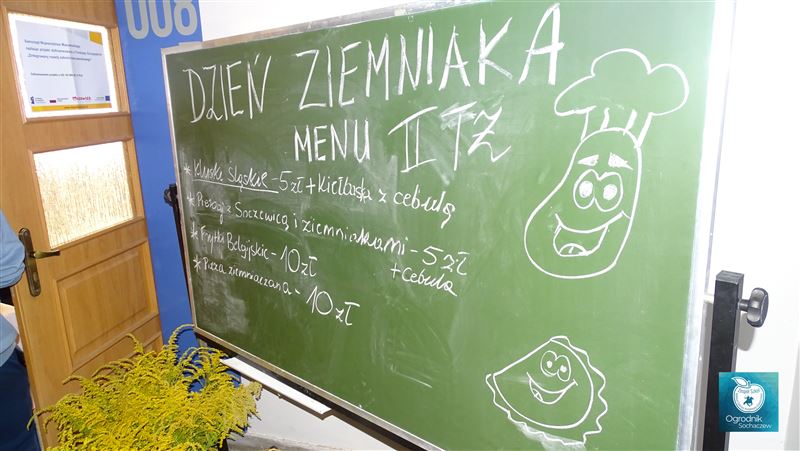 008
DZIEŃ ZIEMNIAKA
MENU II TŻ
* Kluski śląskie - 5 zł + kiełbaska z cebulą
* Pierogi z soczewicą i ziemniakami - 5 zł
+ cebula
* Frytki Belgijskie - 10 zł
* Pizza ziemniaczana - 10 zł
Ogrodnik
Sochaczew